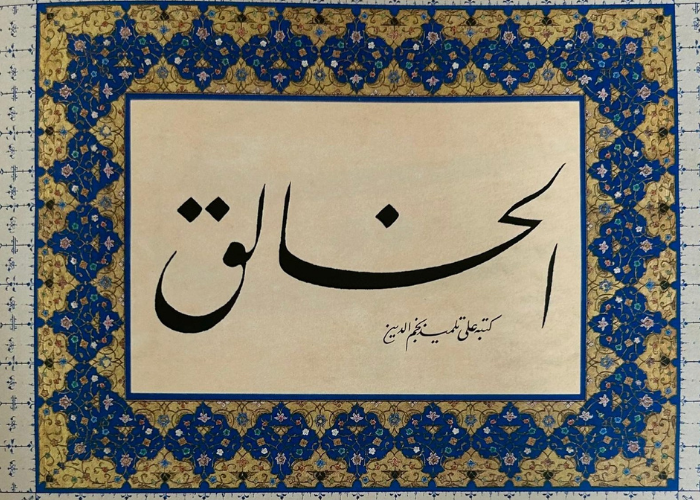 الخالق
كتبه علي تلميذ نجم الدين